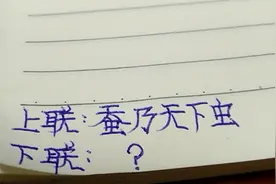 上联：蚕乃天下虫
下联：？